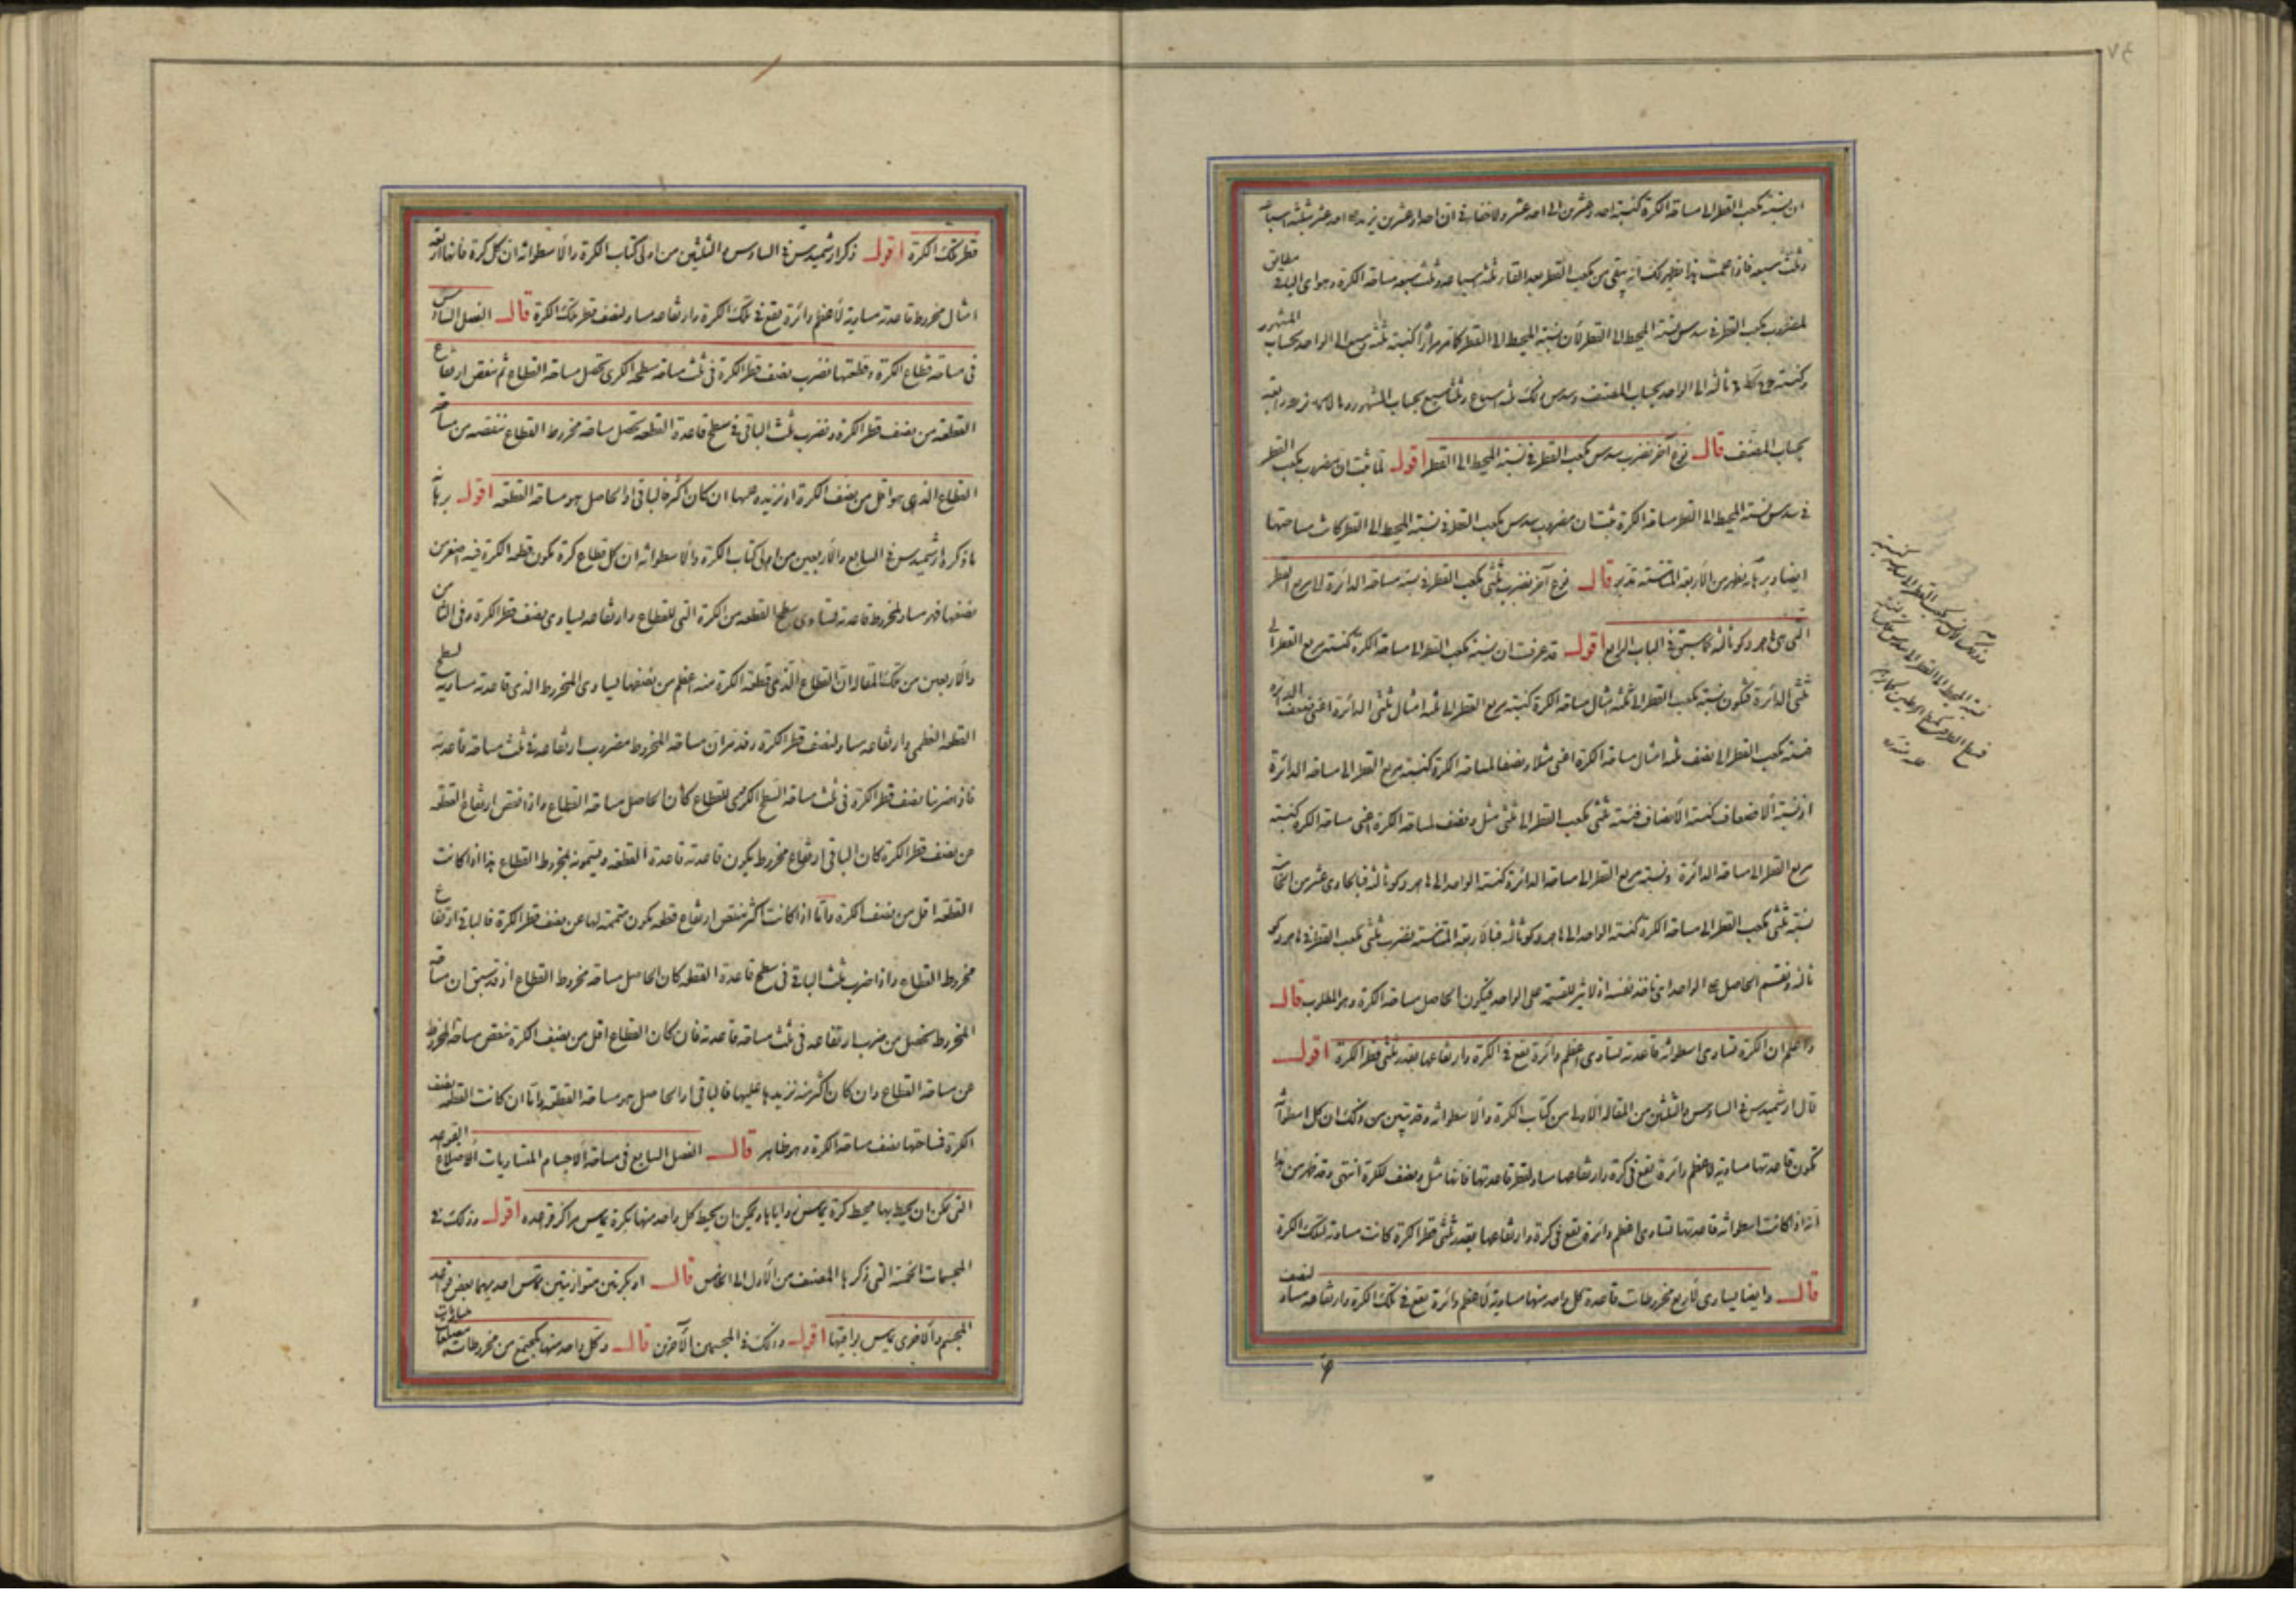 ان نسبة مكعب القطر الى مساحة الكرة كنسبة احد وعشرين الى احد عشر ولا خفاء في ان احدا وعشرين يزيد على احد عشر بثلثة اسباعه
وثلث سبعه فاذا علمت هذا ظهر لك انه يبقى من مكعب القطر بعد القاء ثلثة اسباعه وثلث سبعه مساحة الكرة وهو اى الباقى مطابق
لمضروب مكعب القطر فى سدس نسبة المحيط الى القطر لأن نسبة المحيط الى القطر كما مر مرارا كنسبة ثلثة وسبع الى الواحد بحساب المشهور
ثالثه الى الواحد بحساب المصنف وسدس ذلك ثلثة اسباع وثلثا سبع بحساب المشهور
بحساب المصنف قال نوع آخر نضرب سدس مكعب القطر فى نسبة المحيط الى القطر اقول لما ثبت ان مضروب مكعب القطر
فى سدس نسبة المحيط الى القطر مساحة الكرة ثبت ان مضروب سدس مكعب القطر فى نسبة المحيط الى القطر كانت مساحتها
ايضا وبرهانه يظهر من الأربعة المتناسبة تدبر قال نوع آخر نضرب ثلثى مكعب القطر فى نسبة مساحة الدائرة الى مربع القطر
التى هى ثالثه كما سبق فى الباب الرابع اقول قد عرفت ان نسبة مكعب القطر الى مساحة الكرة كنسبة مربع القطر الى
ثلثى الدائرة فتكون نسبة مكعب القطر الى ثلثة امثال مساحة الكرة كنسبة مربع القطر الى ثلثة امثال ثلثى الدائرة اعنى ضعف الدائرة
فنسبة مكعب القطر الى نصف ثلثة امثال مساحة الكرة اعنى مثلا ونصفا لمساحة الكرة كنسبة مربع القطر الى مساحة الدائرة
اذ نسبة الأضعاف كنسبة الأنصاف فنسبة ثلثى مكعب القطر الى ثلثى مثل ونصف لمساحة الكرة اعنى مساحة الكرة كنسبة
مربع القطر الى مساحة الدائرة ونسبة مربع القطر الى مساحة الدائرة كنسبة الواحد الى ثالثه فبالحادى عشر من
نسبة ثلثى مكعب القطر الى مساحة الكرة كنسبة الواحد الى ثالثه فبالأربعة المتناسبة نضرب ثلثى مكعب القطر فى
ثالثه ونقسم الحاصل على الواحد اى ناخذ نفسه اذ لا اثر للقسمة على الواحد فيكون الحاصل مساحة الكرة وهو المطلوب قال
واعلم ان الكرة تساوى اسطوانة قاعدته تساوى اعظم دائرة تقع فى الكرة وارتفاعها بقدر ثلثى قطر الكرة اقول
قال ارشميدس فى السادس والثلثين من المقالة الاولى من كتاب الكرة والأسطوانة وقد تبين من ذلك ان كل اسطوانة
تكون قاعدتها مساوية لاعظم دائرة تقع فى كرة وارتفاعها مساو لقطر قاعدتها فانها مثل ونصف للكرة انتهى وقد ظهر من هذا
انه اذا كانت اسطوانة قاعدتها تساوى اعظم دائرة تقع فى كرة وارتفاعها بقدر ثلثى قطر الكرة كانت مساوية لتلك الكرة
قال وايضا يساوى لأربع مخروطات قاعدة كل واحد منها مساوية لأعظم دائرة تقع فى تلك الكرة وارتفاعه مساو لنصف
قطر تلك الكرة اقول ذكر ارشميدس فى السادس والثلثين من اولى كتاب الكرة والأسطوانة ان كل كرة فانها اربعة
امثال مخروط قاعدته مساوية لأعظم دائرة تقع فى تلك الكرة وارتفاعه مساو لنصف قطر تلك الكرة قال الفصل السادس
فى مساحة قطاع الكرة وقطعتها نضرب نصف قطر الكرة فى ثلث مساحة سطحه الكرى تحصل مساحة القطاع ثم ننقص ارتفاع
القطعة من نصف قطر الكرة ونضرب ثلث الباقى فى سطح قاعدة القطعة تحصل مساحة مخروط القطاع ننقصه من مساحة
القطاع الذى هو اقل من نصف الكرة او نزيد عليها ان كان اكثر فالباقى او الحاصل هو مساحة القطعة اقول برهانه
ما ذكره ارشميدس فى السابع والأربعين من اولى كتاب الكرة والأسطوانة ان كل قطاع كرة تكون قطعة الكرة فيه اصغر من
نصفها فهو مساو لمخروط قاعدته تساوى سطح القطعة من الكرة التى للقطاع وارتفاعه يساوى نصف قطر الكرة وفى الثامن
والأربعين من تلك المقالة ان القطاع الذى قطعة الكرة منه اعظم من نصفها يساوى المخروط الذى قاعدته مساوية لسطح
القطعة العظمى وارتفاعه مساو لنصف قطر الكرة وقد مر ان مساحة المخروط مضروب ارتفاعه فى ثلث مساحة قاعدته
فاذا ضربنا نصف قطر الكرة فى ثلث مساحة السطح الكرى للقطاع كان الحاصل مساحة القطاع واذا نقص ارتفاع القطعة
من نصف قطر الكرة كان الباقى ارتفاع مخروط يكون قاعدته قاعدة القطعة ويسمونه بمخروط القطاع هذا اذا كانت
القطعة اقل من نصف الكرة واما اذا كانت اكثر ننقص ارتفاع قطعة تكون متممة لها من نصف قطر الكرة فالباقى ارتفاع
مخروط القطاع واذا ضرب ثلث الباقى فى سطح قاعدة القطعة كان الحاصل مساحة مخروط القطاع اذ قد سبق ان مساحة
المخروط تحصل من ضرب ارتفاعه فى ثلث مساحة قاعدته فان كان القطاع اقل من نصف الكرة ننقص مساحة المخروط
من مساحة القطاع وان كان اكثر منه نزيدها عليها فالباقى او الحاصل هو مساحة القطعة واما ان كانت القطعة نصف
الكرة فمساحتها نصف مساحة الكرة وهو ظاهر قال الفصل السابع فى مساحة الأجسام المتساويات الأضلاع القواعد
التى يمكن ان يحيط بها محيط كرة يماس زواياها ويمكن ان يحيط كل واحد منها بكرة يماس مراكز قواعده اقول وذلك فى
المجسمات الخمسة التى ذكرها المصنف من الأول الى الخامس قال او بكرتين متوازيتين تماس احديهما بعض قواعد
المجسم والأخرى يماس بواقيها اقول وذلك فى المجسمين الآخرين قال وكل واحد منها يجتمع من مخروطات